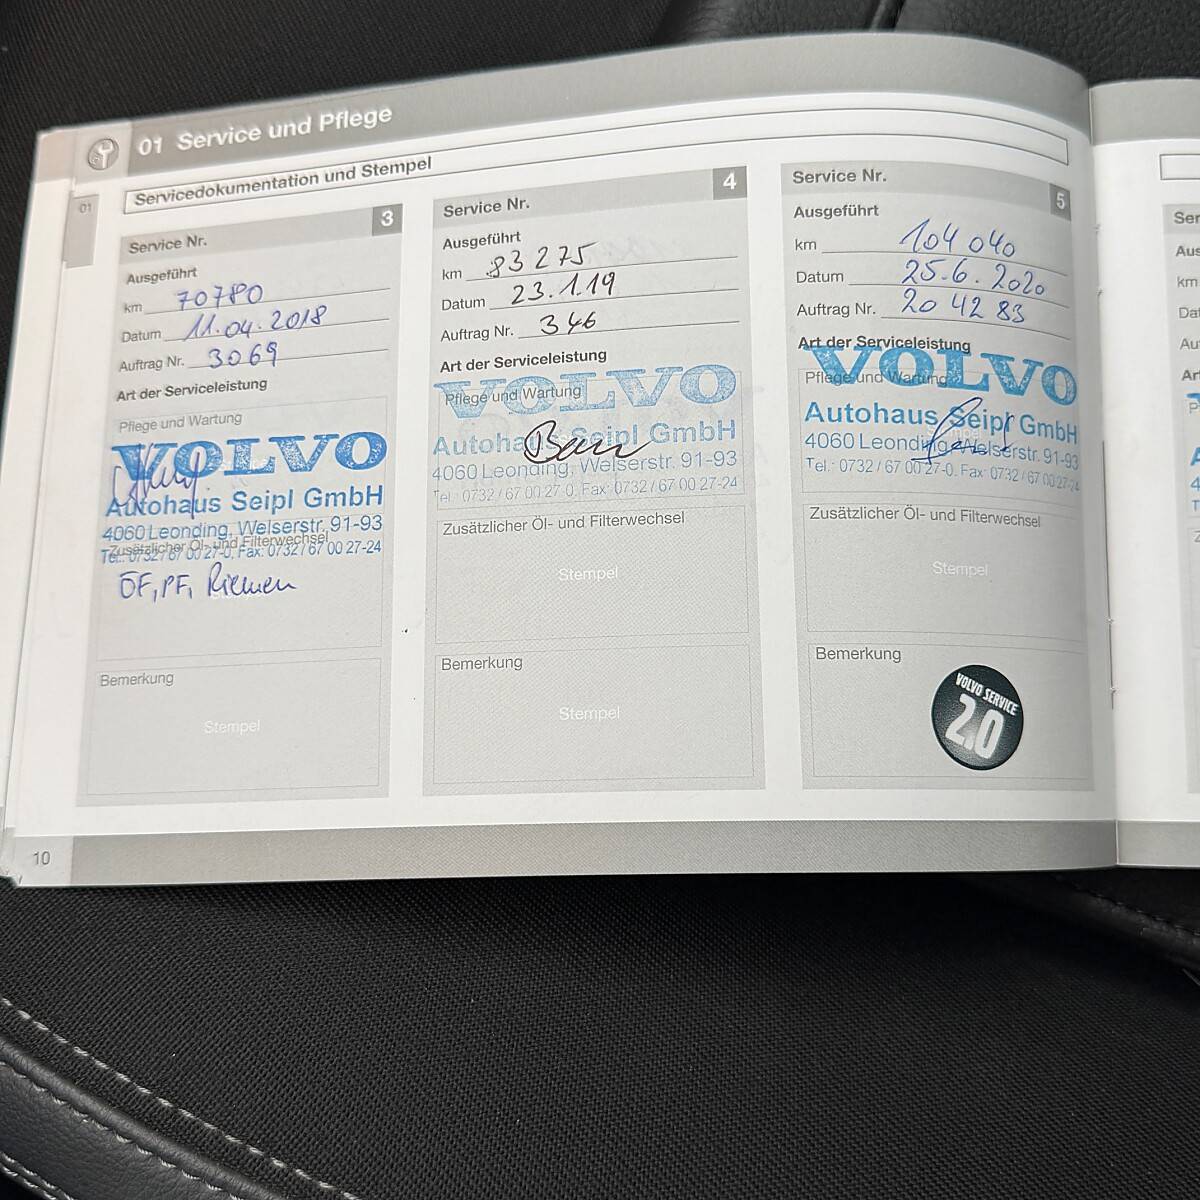 01 Service und Pflege
01
Servicedokumentation und Stempel
Service Nr. 3
Ausgeführt
km 70780
Datum 11.04.2018
Auftrag Nr. 3069
Art der Serviceleistung
Pflege und Wartung
VOLVO
Autohaus Seipl GmbH
4060 Leonding, Welserstr. 91-93
Zusätzlicher Öl- und Filterwechsel
Tel.: 0732/67 00 27-0, Fax: 0732/67 00 27-24
ÖF, PF, Riemen
Bemerkung
Stempel
Service Nr. 4
Ausgeführt
km 83 275
Datum 23.1.19
Auftrag Nr. 346
Art der Serviceleistung
Pflege und Wartung
VOLVO
Autohaus Seipl GmbH
4060 Leonding, Welserstr. 91-93
Tel.: 0732/67 00 27-0, Fax: 0732/67 00 27-24
Zusätzlicher Öl- und Filterwechsel
Stempel
Bemerkung
Stempel
Service Nr. 5
Ausgeführt
km 104 040
Datum 25.6.2020
Auftrag Nr. 20 42 83
Art der Serviceleistung
Pflege und Wartung
VOLVO
Autohaus Seipl GmbH
4060 Leonding, Welserstr. 91-93
Tel.: 0732/67 00 27-0, Fax: 0732/67 00 27-24
Zusätzlicher Öl- und Filterwechsel
Stempel
Bemerkung
VOLVO SERVICE
2.0
10
Ser
Aus
km
Da
Au
Art